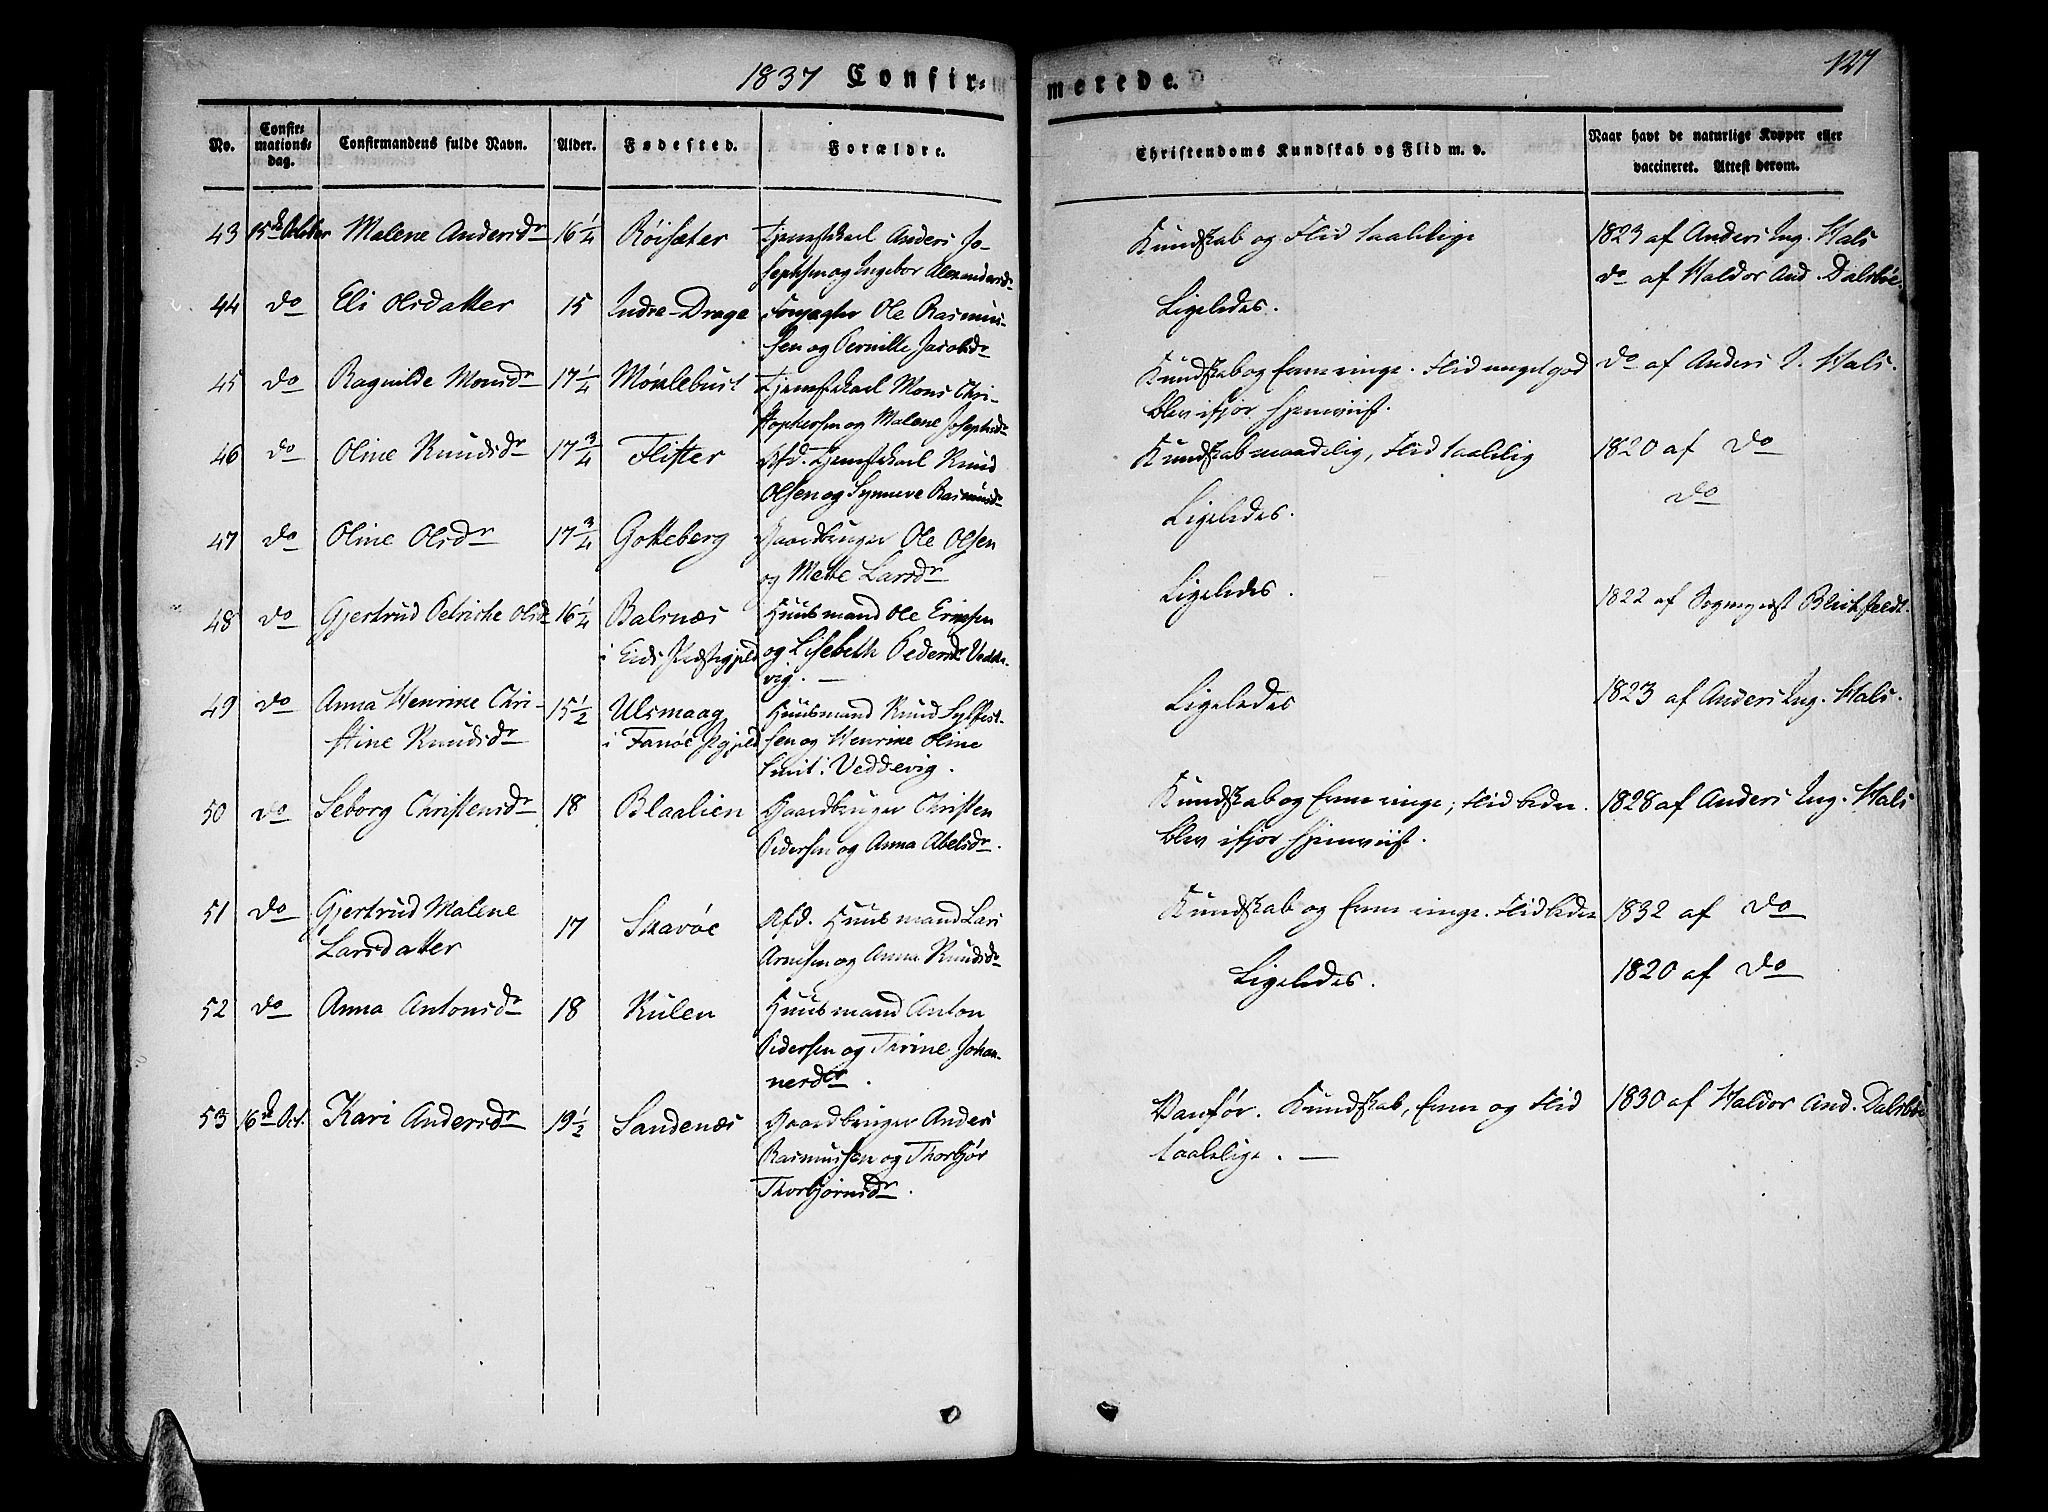 1837 Confir=
merede.
127
No.
Confir=
mations=
dag.
Confirmandens fulde Navn.
Alder.
Fødested.
Forældre.
Christendoms Kundskab og Flid m. v.
Naar havt de naturlige Kopper eller
vaccineret. Attest derom.
43 15de October Malene Andersdr 16 1/4 Röisæter Tjenestekarl Anders Jo-
sephsen og Ingebor Alexandersdr
Kundskab og Flid taalelige
1823 af Anders Ing. Hals
44 do Eli Olsdatter 15 Indre-Drage Forpagter Ole Rasmus-
sen og Pernille Jacobsdr
Ligeledes.
do af Haldor And. Dalsböe
45 do Ragnilde Monsdr 17 1/4 Möklebust Tjenestekarl Mons Chri-
stophersen og Malene Josephsdr
Kundskab og Evne ringe. Flid meget god
blev ifjor hjemviist.
do af Anders I. Hals.
46 do Oline Knudsdr 17 3/4 Flister Afd. Tjenestekarl Knud
Olsen og Synneve Rasmusdr
Kundskab maadelig, Flid taalelig
1820 af do
47 do Oline Olsdr 17 3/4 Gotteberg Gaardbruger Ole Olsen
og Mette Larsdr
Ligeledes.
do
48 do Gjertrud Petrikke Olsdr 16 1/4 Balsnæs Huusmand Ole Ericksen
i Eids Præstegjeld og Lisebeth Pedersdr Vedde-
vig. —
Ligeledes.
1822 af Sognepræst Blichfeldt.
49 do Anna Henrine Chri- 15 1/2 Ulsmaag Huusmand Knud Sylfest-
stine Knudsdr i Fanöe Pgjeld sen og Henrine Oline
Smit: Veddevig.
Ligeledes
1823 af Anders Ing. Hals.
50 do Seborg Christensdr 18 Blaalien Gaardbruger Christen
Pedersen og Anna Abelsdr.
Kundskab og Evne ringe; Flid bedre.
blev ifjor hjemviist.
1828 af Anders Ing. Hals
51 do Gjertrud Malene 17 Skavöe Afd. Huusmand Lars
Larsdatter Arnesen og Anna Knudsdr
Kundskab og Evne ringe. Flid bedre
1832 af do
52 do Anna Antonsdr 18 Kulen Huusmand Anton
Pedersen og Thrine Johan-
nesdr.
Ligeledes.
1820 af do
53 16de Oct. Kari Andersdr 19 1/2 Sandenæs Gaardbruger Anders
Rasmussen og Thorbjör
Thorbjörnsdr.
Vanför. Kundskab, Evne og Flid
taalelige. —
1830 af Haldor And. Dalsböe